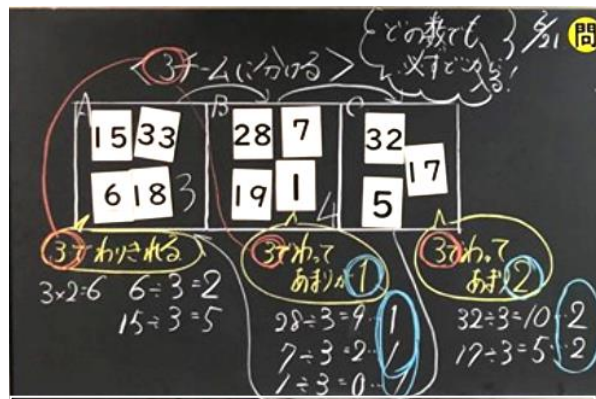 <3チームに分ける>
どの数でも
必ずどこかに
入る!
問
A
B
C
15 33
6 18
3
28 7
19 1
4
32
17
5
3でわりきれる
3×2=6 6÷3=2
15÷3=5
3でわって
あまりが1
28÷3=9…1
7÷3=2…1
1÷3=0…1
3でわって
あまり2
32÷3=10…2
17÷3=5…2